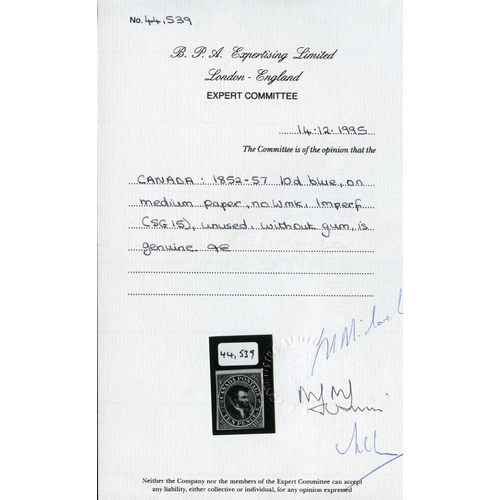 No. 44,539
B. P. A. Expertising Limited
London - England
EXPERT COMMITTEE
14.12.1995
The Committee is of the opinion that the
CANADA: 1852-57 10d blue, on
medium paper, no wmk, Imperf
(SG 15), unused, without gum, is
genuine.
44,539
CANADA POSTAGE
TEN PENCE
Neither the Company nor the members of the Expert Committee can accept
any liability, either collective or individual, for any opinion expressed